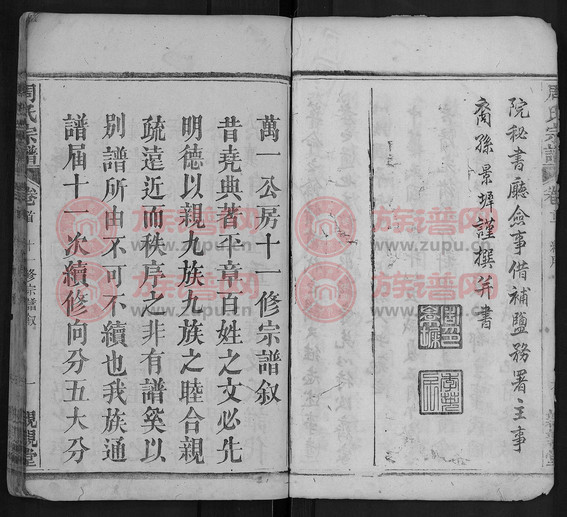 周氏宗譜
院秘書廳僉事借補鹽務署主事
裔孫景墀謹撰并書
萬一公房十一修宗譜叙
昔堯典著平章百姓之文必先
明德以親九族九族之睦合親
疏遠近而秩序之非有譜奚以
別譜所由不可不續也我族通
譜届十一次續修向分五大分
周氏宗譜
卷首 十一修宗譜叙
一
親親堂
族譜网
www.zupu.cn
族譜网
www.zupu.cn
族譜网
www.zupu.cn
族譜网
www.zupu.cn